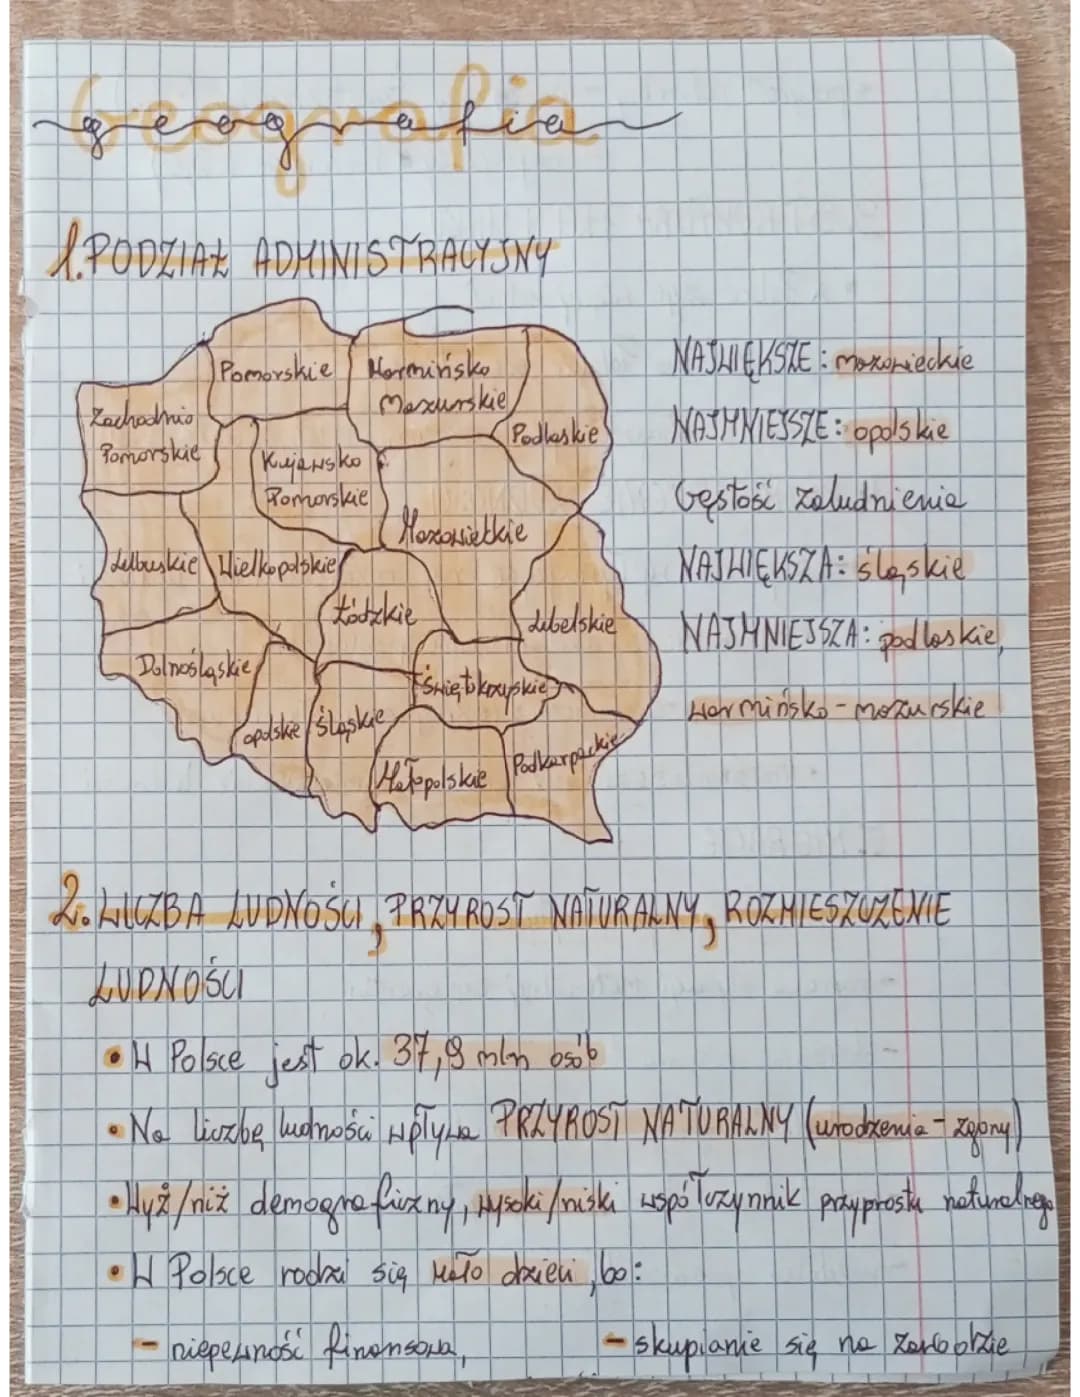 geografia
1. PODZIAŁ ADMINISTRACYJNY
Pomorskie
Warmińsko
Mazurskie
Zachodnio
Pomorskie
Podlaskie
Kujawsko
Pomorskie
Mazowieckie
Lubuskie
Wielkopolskie
Łódzkie
Lubelskie
Dolnośląskie
Świętokrzyskie
opolskie
śląskie
Małopolskie
Podkarpackie
NAJWIĘKSZE: mazowieckie
NAJMNIEJSZE: opolskie
Gęstość zaludnienia
NAJWIĘKSZA: śląskie
NAJMNIEJSZA: podlaskie,
warmińsko-mazurskie
2. LICZBA LUDNOŚCI, PRZYROST NATURALNY, ROZMIESZCZENIE
LUDNOŚCI
• W Polsce jest ok. 37,9 mln osób
• Na liczbę ludności wpływa PRZYROST NATURALNY (urodzenia - zgony)
• Wyż/niż demograficzny, wysoki/niski współczynnik przyprostu naturalnego
• W Polsce rodzi się mało dzieci, bo:
- niepewność finansowa, - skupianie się na zarobdzie